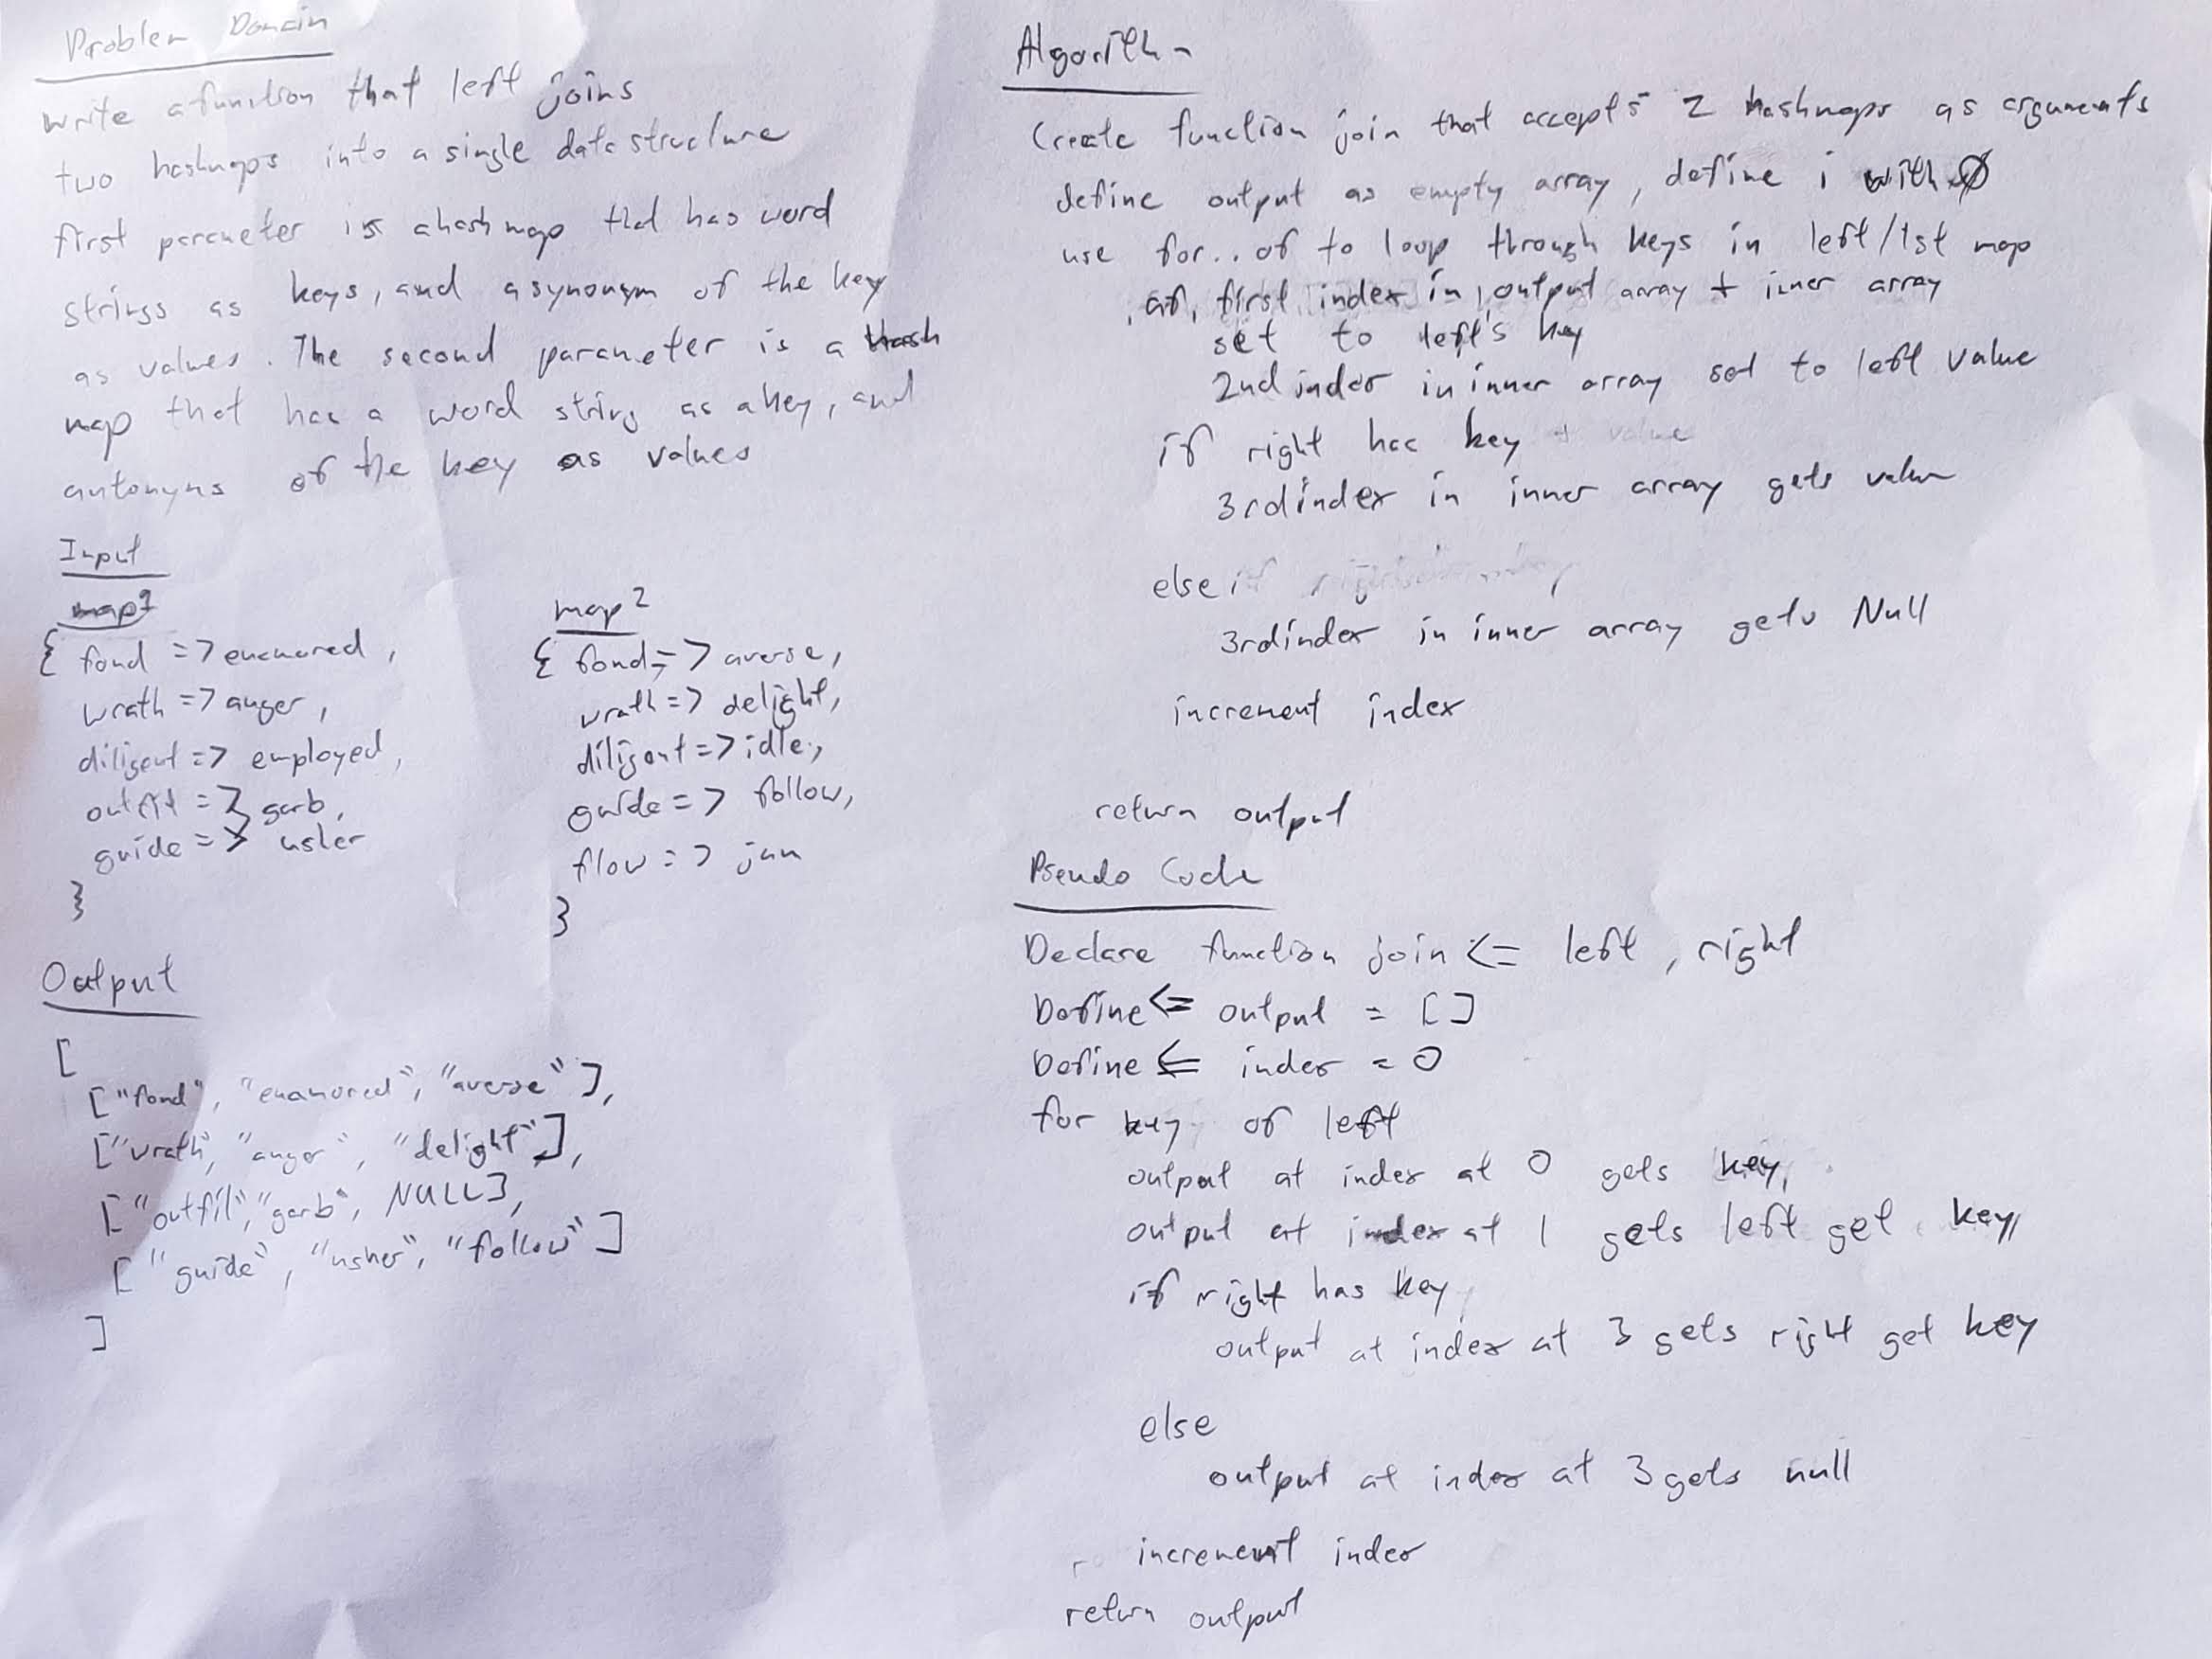 Problem Domain
write a function that left joins
two hashmaps into a single data structure
first parameter is a hashmap that has word
strings as keys, and a synonym of the key
as values. The second parameter is a hash
map that has a word string as a key, and
antonyms of the key as values
Input
map1
{ fond => enamored,
wrath => anger,
diligent => employed,
outfit => garb,
guide => usher
}
map2
{ fond => averse,
wrath => delight,
diligent => idle,
guide => follow,
flow => jam
}
Output
[
["fond", "enamored", "averse"],
["wrath", "anger", "delight"],
["outfit", "garb", NULL],
["guide", "usher", "follow"]
]
Algorithm
Create function join that accepts 2 hashmaps as arguments
define output as empty array, define i with 0
use for..of to loop through keys in left/1st map
at first index in output array + inner array
set to left's key
2nd index in inner array set to left value
if right has key + value
3rd index in inner array gets value
else if
3rd index in inner array gets Null
increment index
return output
Pseudo Code
Declare function join <= left, right
Define <= output = []
Define <= index = 0
for key of left
output at index at 0 gets key
output at index at 1 gets left get key
if right has key
output at index at 3 gets right get key
else
output at index at 3 gets null
increment index
return output